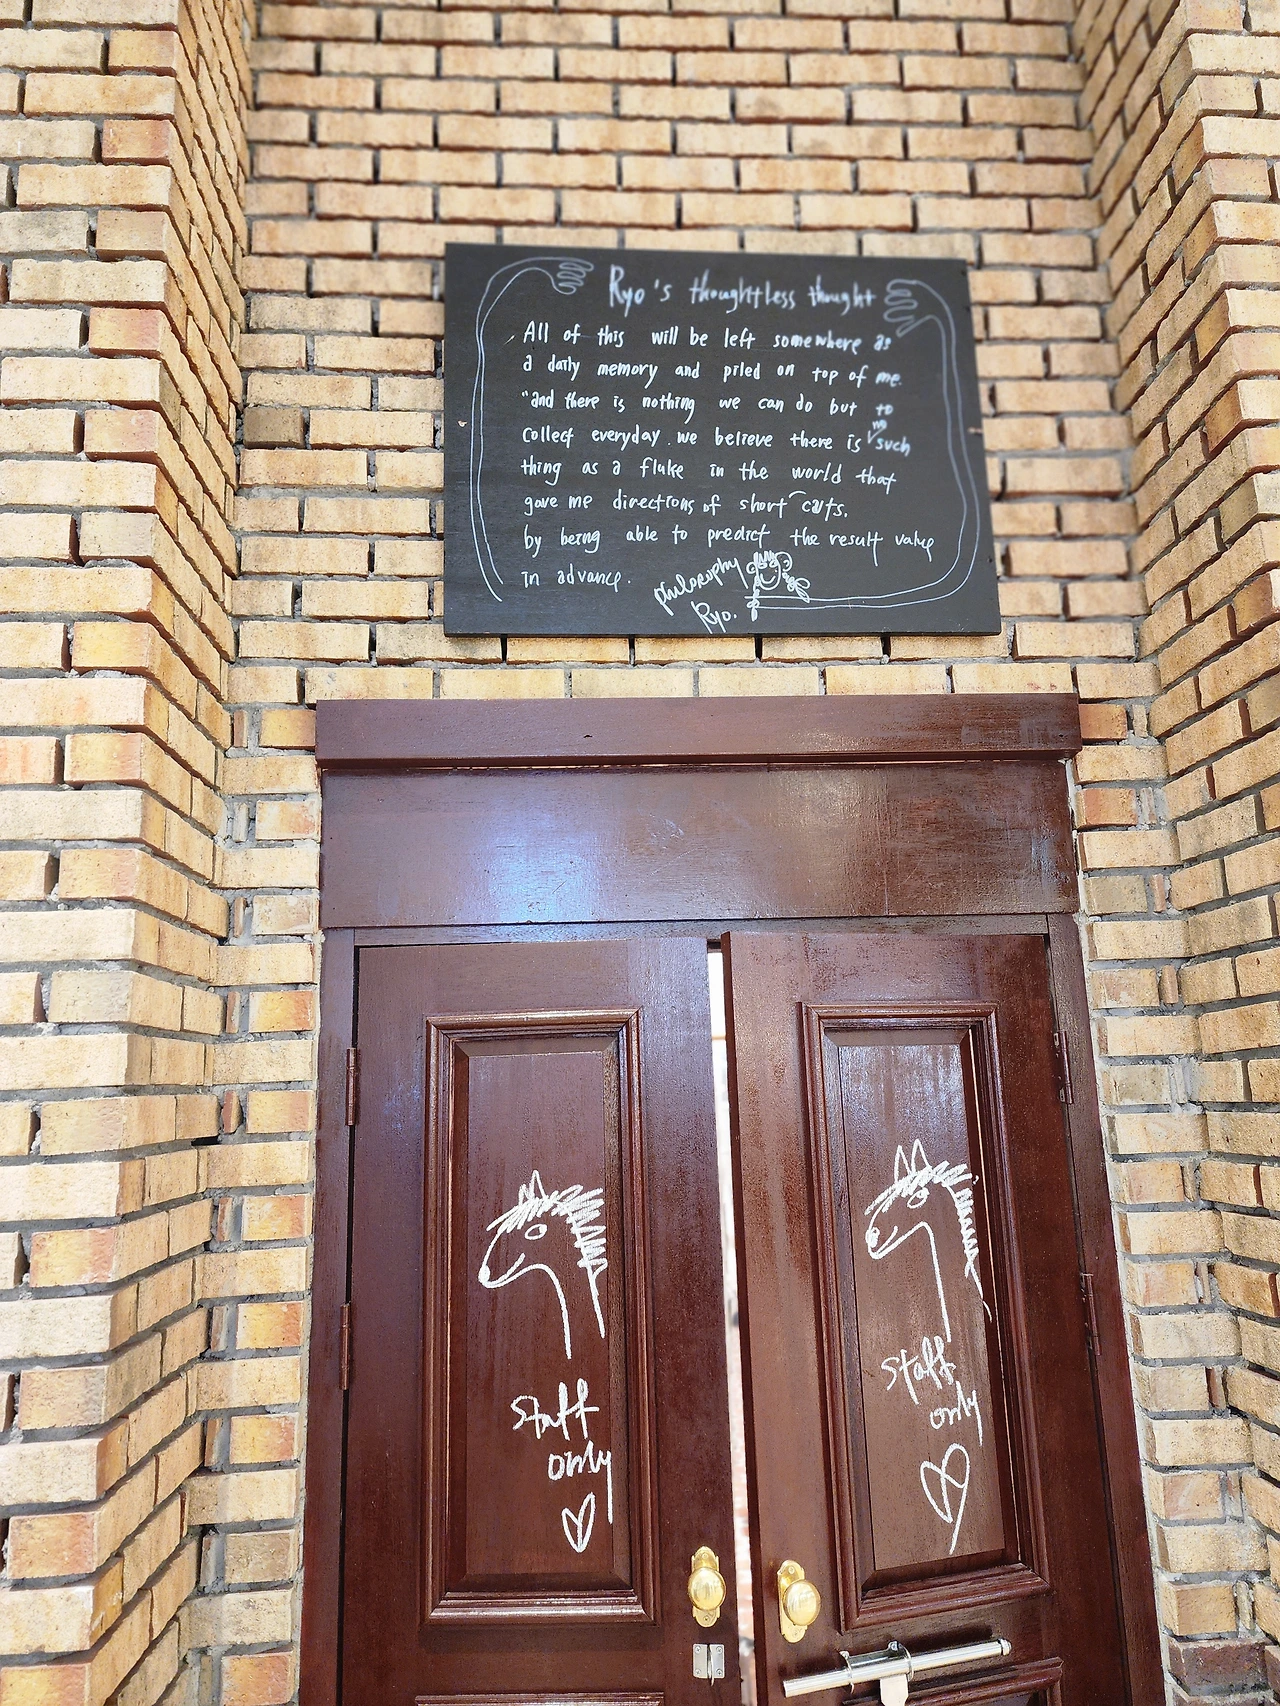 Ryo's thoughtless thought
All of this will be left somewhere as
a daily memory and piled on top of me.
"and there is nothing we can do but to
collect everyday. we believe there is no such
thing as a fluke in the world that
gave me directions of short cuts.
by being able to predict the result value
in advance.
philosophy
Ryo.
staff
only
staff
only